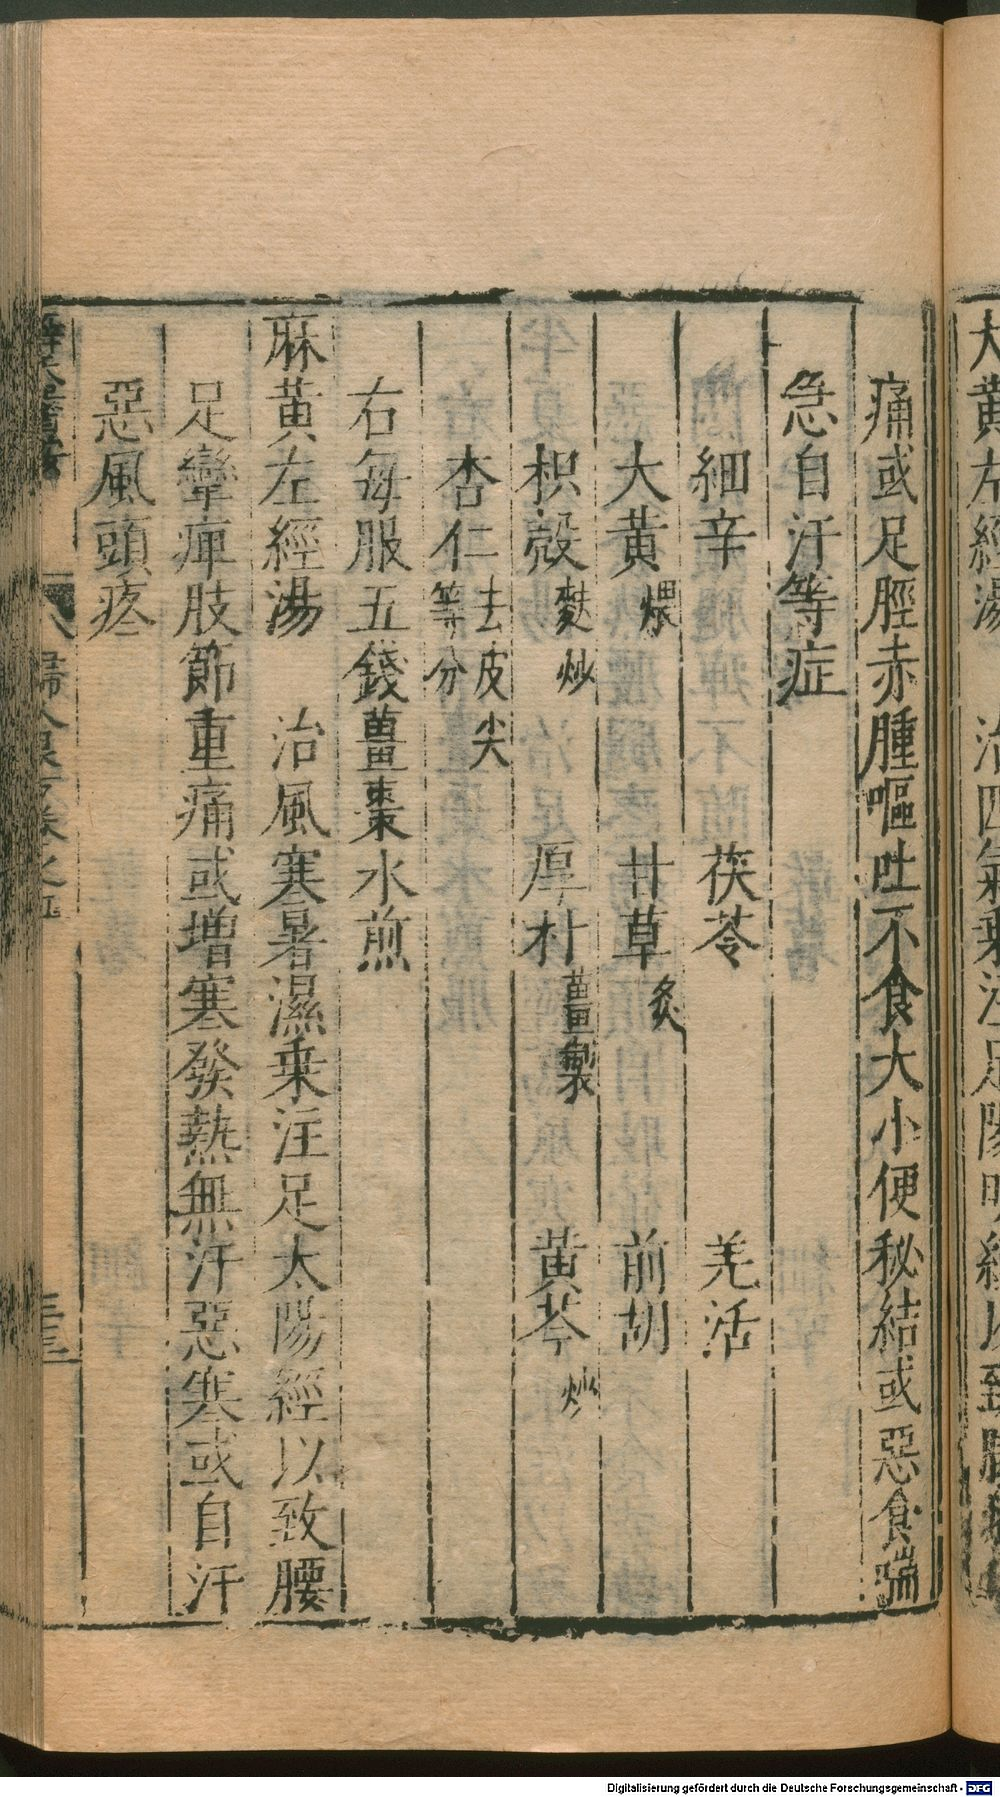 大黃左經湯 治四氣乗注足陽明經以致腰
痛或足脛赤腫嘔吐不食大小便秘結或惡食喘
急自汗等症
細辛 茯苓 羌活
大黃煨 甘草炙 前胡
枳殼麩炒 厚朴薑製 黃芩炒
杏仁去皮尖等分
右每服五錢薑棗水煎
麻黃左經湯 治風寒暑濕乗注足太陽經以致腰
足攣痺肢節重痛或增寒發熱無汗惡寒或自汗
惡風頭疼
Digitalisierung gefördert durch die Deutsche Forschungsgemeinschaft - DFG